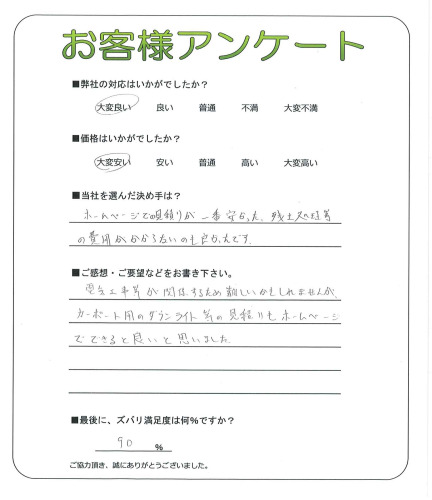 お客様アンケート
■弊社の対応はいかがでしたか?
大変良い 良い 普通 不満 大変不満
■価格はいかがでしたか?
大変安い 安い 普通 高い 大変高い
■当社を選んだ決め手は?
ホームページで見積りが一番安かった。残土処理等
の費用がかからないのも良かったです。
■ご感想・ご要望などをお書き下さい。
電気工事等が関係するため難しいかもしれませんが、
カーポート用のダウンライト等の見積りもホームページ
でできると良いと思いました
■最後に、ズバリ満足度は何%ですか?
90 %
ご協力頂き、誠にありがとうございました。